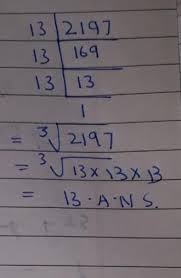 13 | 2197
13 | 169
13 | 13
1
= ∛2197
= ∛13×13×13
= 13.A.N.S.